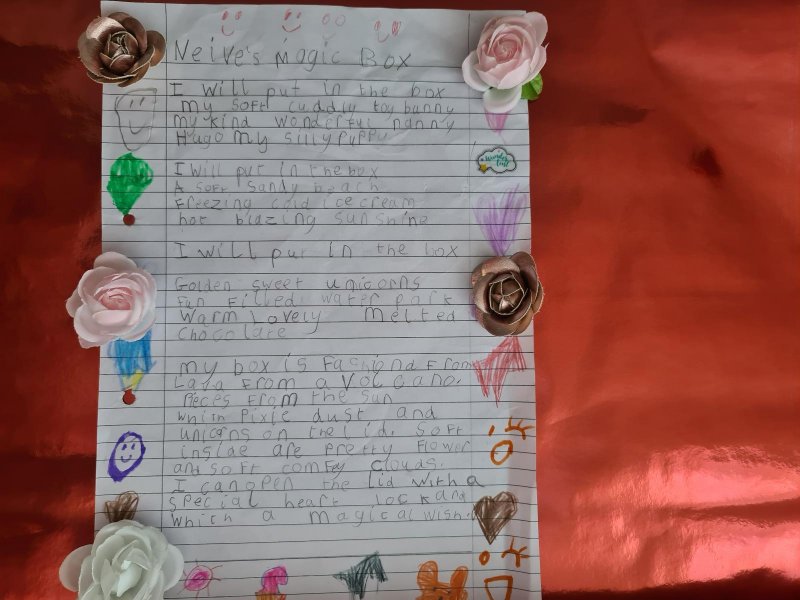 Neive's Magic Box
I will put in the box
my soft cuddly toy bunny
my kind wonderful nanny
Hugo my silly puppy
I will put in the box
A soft sandy beach
Freezing cold ice cream
hot blazing sunshine
I will put in the box
Golden sweet unicorns
Fun Filled water park
Warm Lovely Melted
Chocolate
My box is Fashiond From
Lava From a Volcano.
Peces From the sun
with Pixie dust and
unicorns on the lid. Soft
inside are pretty Flower
and soft comfey clouds.
I can open the lid with a
special heart lock and
which a magical wish.